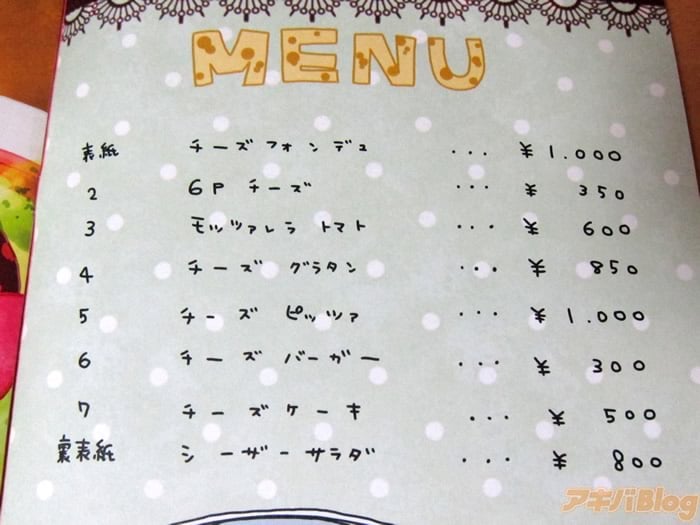 MENU
表紙 チーズフォンデュ ... ¥1.000
2 6Pチーズ ... ¥350
3 モッツァレラトマト ... ¥600
4 チーズグラタン ... ¥850
5 チーズピッツァ ... ¥1.000
6 チーズバーガー ... ¥300
7 チーズケーキ ... ¥500
裏表紙 シーザーサラダ ... ¥800
アキバBlog